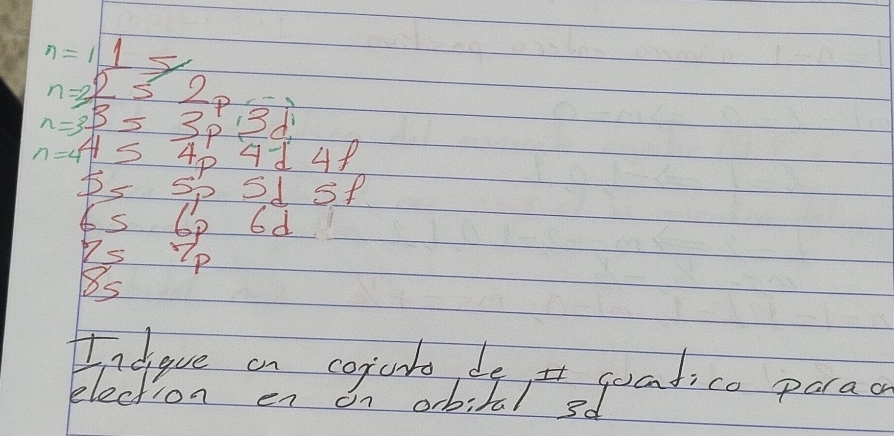 n=1 1 s
n=2 2 s 2p
n=3 3 s 3p 3d
n=4 4 s 4p 4d 4f
5s 5p 5d 5f
6s 6p 6d
7s 7p
8s
Indique un cojunto de # quantico para un
electron en un orbital 3d